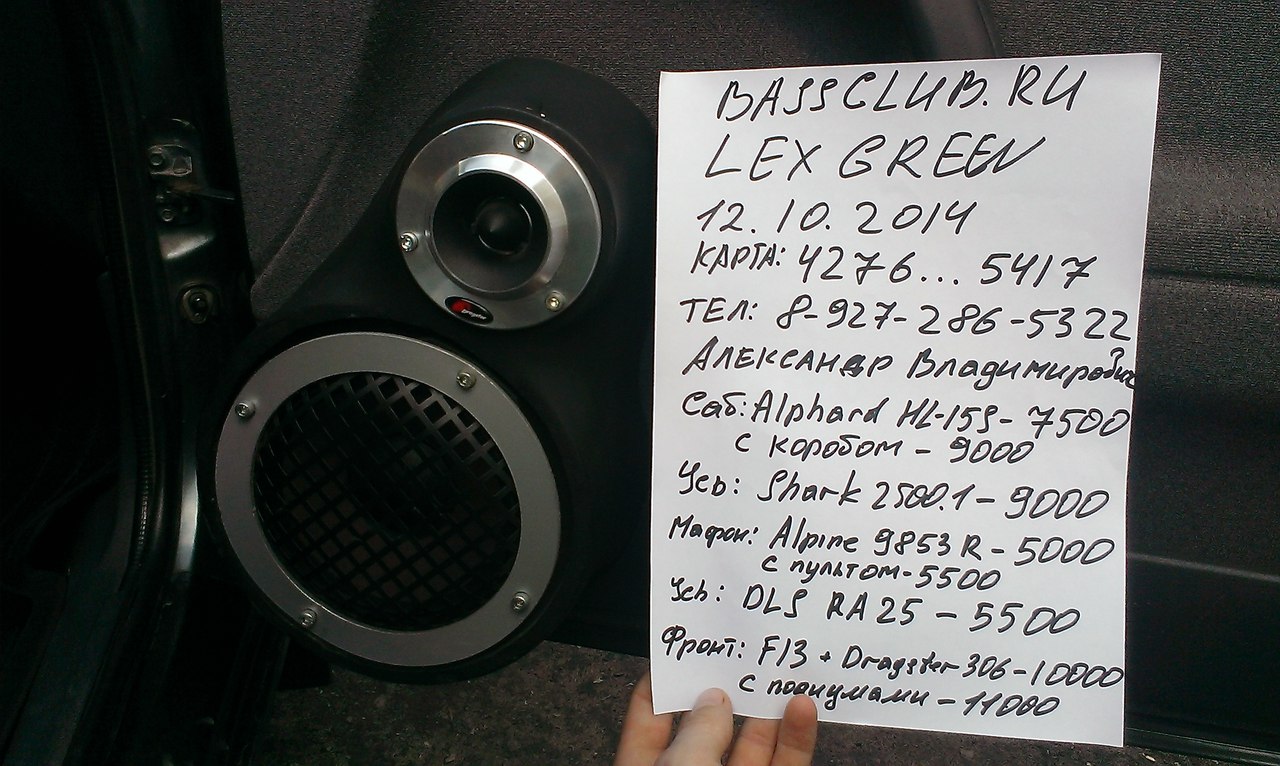 BASSCLUB.RU
LEX GREEN
12.10.2014
КАРТА: 4276... 5417
ТЕЛ: 8-927-286-5322
Александр Владимирович
Саб: Alphard HL-15S - 7500
с коробом - 9000
Усь: Shark 2500.1 - 9000
Мафон: Alpine 9853R - 5000
с пультом - 5500
Усь: DLS RA25 - 5500
Фронт: F13 + Dragster 306 - 10000
с подиумами - 11000
Dragster